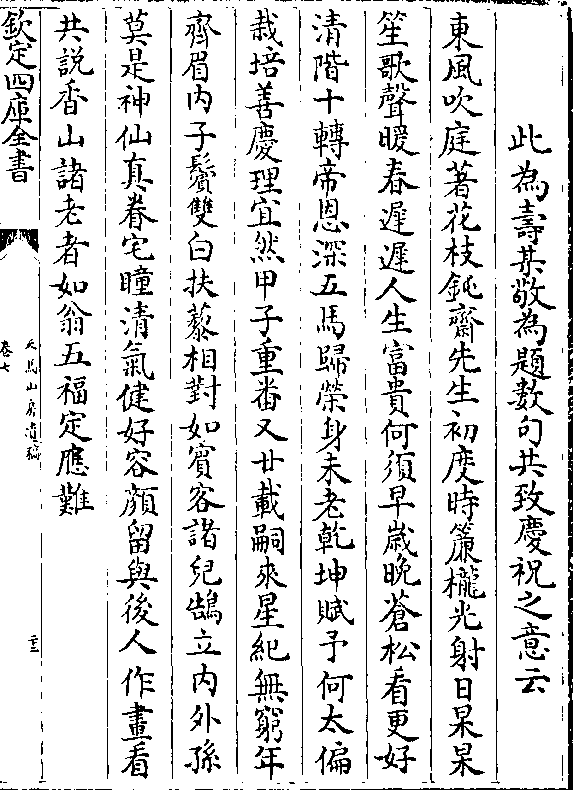 此為壽某敬為題數句共致慶祝之意云
東風吹庭著花枝鈍齋先生初度時簾櫳光射日杲杲
笙歌聲暖春遲遲人生富貴何須早歲晚蒼松看更好
清階十轉帝恩深五馬歸榮身未老乾坤賦予何太偏
栽培善慶理宜然甲子重番又廿載嗣來星紀無窮年
齊眉内子鬢雙白扶藜相對如賓客諸兒鵠立内外孫
莫是神仙真眷宅瞳清氣健好容顔留與後人作畫看
共説香山諸老者如翁五福定應難
欽定四庫全書
天馬山房遺稿
卷七
二十三